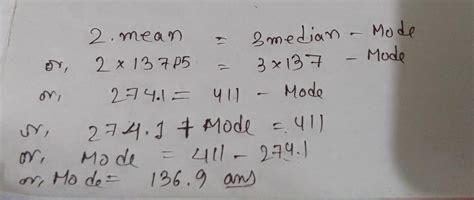 2. mean = 3median - Mode
or, 2 x 137.05 = 3 x 137 - Mode
or, 274.1 = 411 - Mode
or, 274.1 + Mode = 411
or, Mode = 411 - 274.1
or, Mode = 136.9 ans